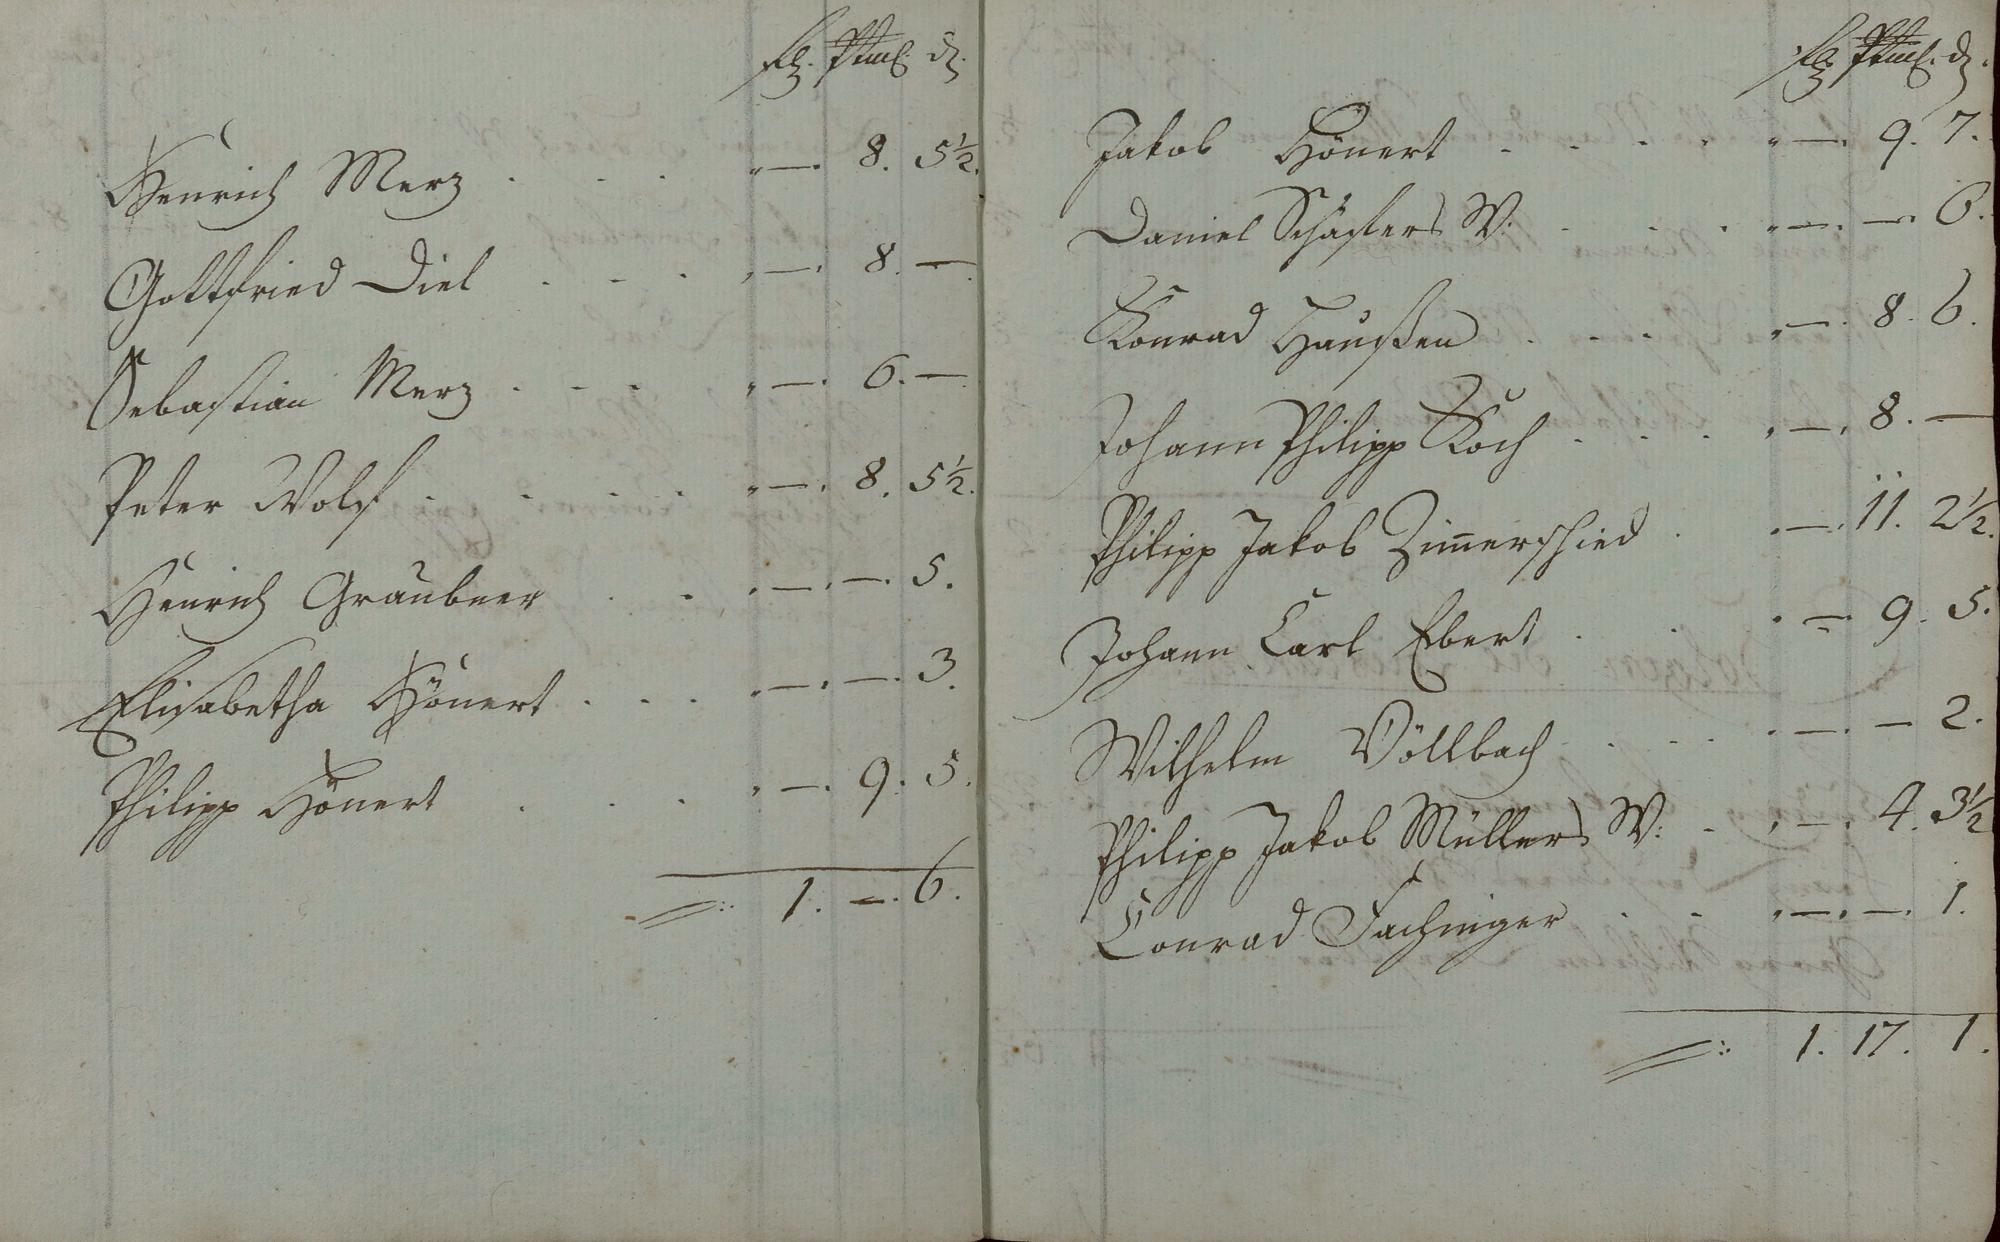 fl. Albus. d.
Henrich Merz . . . " — . 8. 5½.
Gottfried Diel . . . " — . 8. —
Sebastian Merz . . . " — . 6. —
Peter Wolf . . . . " — . 8. 5½.
Henrich Graubner . . . — . — . 5.
Elisabetha Hönert . . . . — . — . 3.
Philipp Hönert . . . . " — . 9. 5.
1. — . 6.
fl. Albus. d.
Jakob Hönert . . . . " — . 9. 7.
Daniel Schäfers W. . . . " — . — . 6.
Konrad Haußen . . . " — . 8. 6.
Johann Philipp Koch . . . " — . 8. —
Philipp Jakob Zim̅erschied . . — . 11. 2½.
Johann Carl Ebert . . . — . 9. 5.
Wilhelm Völlbach . . . . — . — 2.
Philipp Jakob Müllers W: . " — . 4. 3½
Conrad Fachinger . . " — . — . 1.
1. 17. 1.